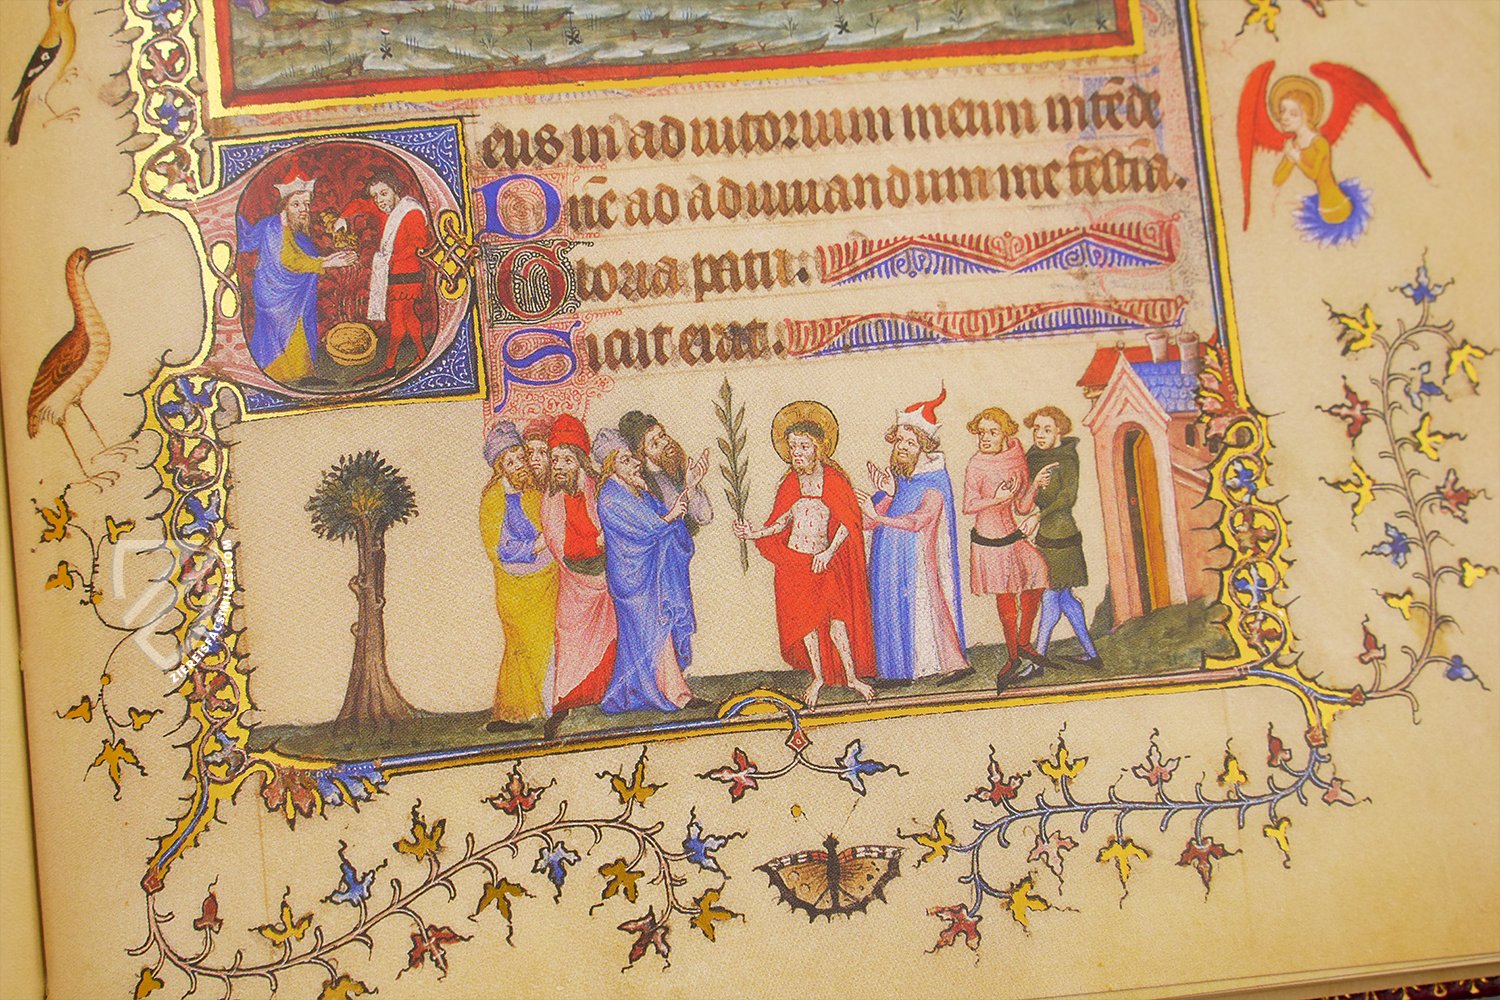 eus in adiutorium meum intēde
Dn̄e ad adiuuandum me festīa.
Gloria patri.
Sicut erat.
ZIEREISFACSIMILES.COM